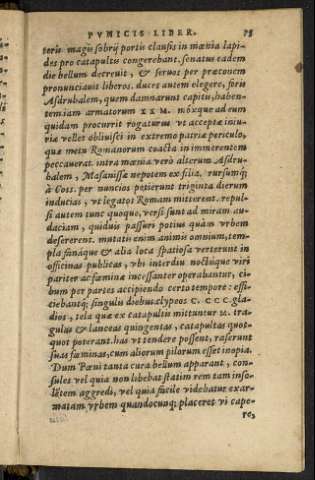 PVNICIS LIBER. 75
teris magis sobrij portis clausis in mœnia lapi-
des pro catapultis congerebant. senatus eadem
die bellum decreuit, & seruos per præconem
pronunciauit liberos. duces autem elegere, foris
Asdrubalem, quem damnarunt capitis, haben-
tem iam armatorum XXM. moxque ad eum
quidam procurrit rogaturus vt acceptæ iniu-
riæ vellet obliuisci in extremo patriæ periculo,
quæ metu Romanorum coacta in immerentem
peccauerat. intra mœnia verò alterum Asdru-
balem, Masanissæ nepotem ex filia. rursumq;
à Coss. per nuncios petierunt triginta dierum
inducias, vt legatos Romam mitterent. repul-
si autem tunc quoque, versi sunt ad miram au-
daciam, quiduis passuri potius quàm vrbem
desererent. mutatis enim animis omnium, tem-
pla fanáque & alia loca spatiosa verterunt in
officinas publicas, vbi interdiu noctúque viri
pariter ac fœminæ incessanter operabantur, ci-
bum per partes accipiendo certo tempore: effi-
ciebantq; singulis diebus clypeos C. CCC. gla-
dios, tela quæ ex catapultis mittuntur M. tra-
gulas & lanceas quingentas, catapultas quot-
quot poterant. has vt tendere possent, raserunt
suas fœminas, cum aliorum pilorum esset inopia.
Dum Pœni tanta cura bellum apparant, con-
sules vel quia non libebat statim rem tam inso-
lētem aggredi, vel quia facile videbatur exar-
matam vrbem quandocunq; placeret vi cape-
re,